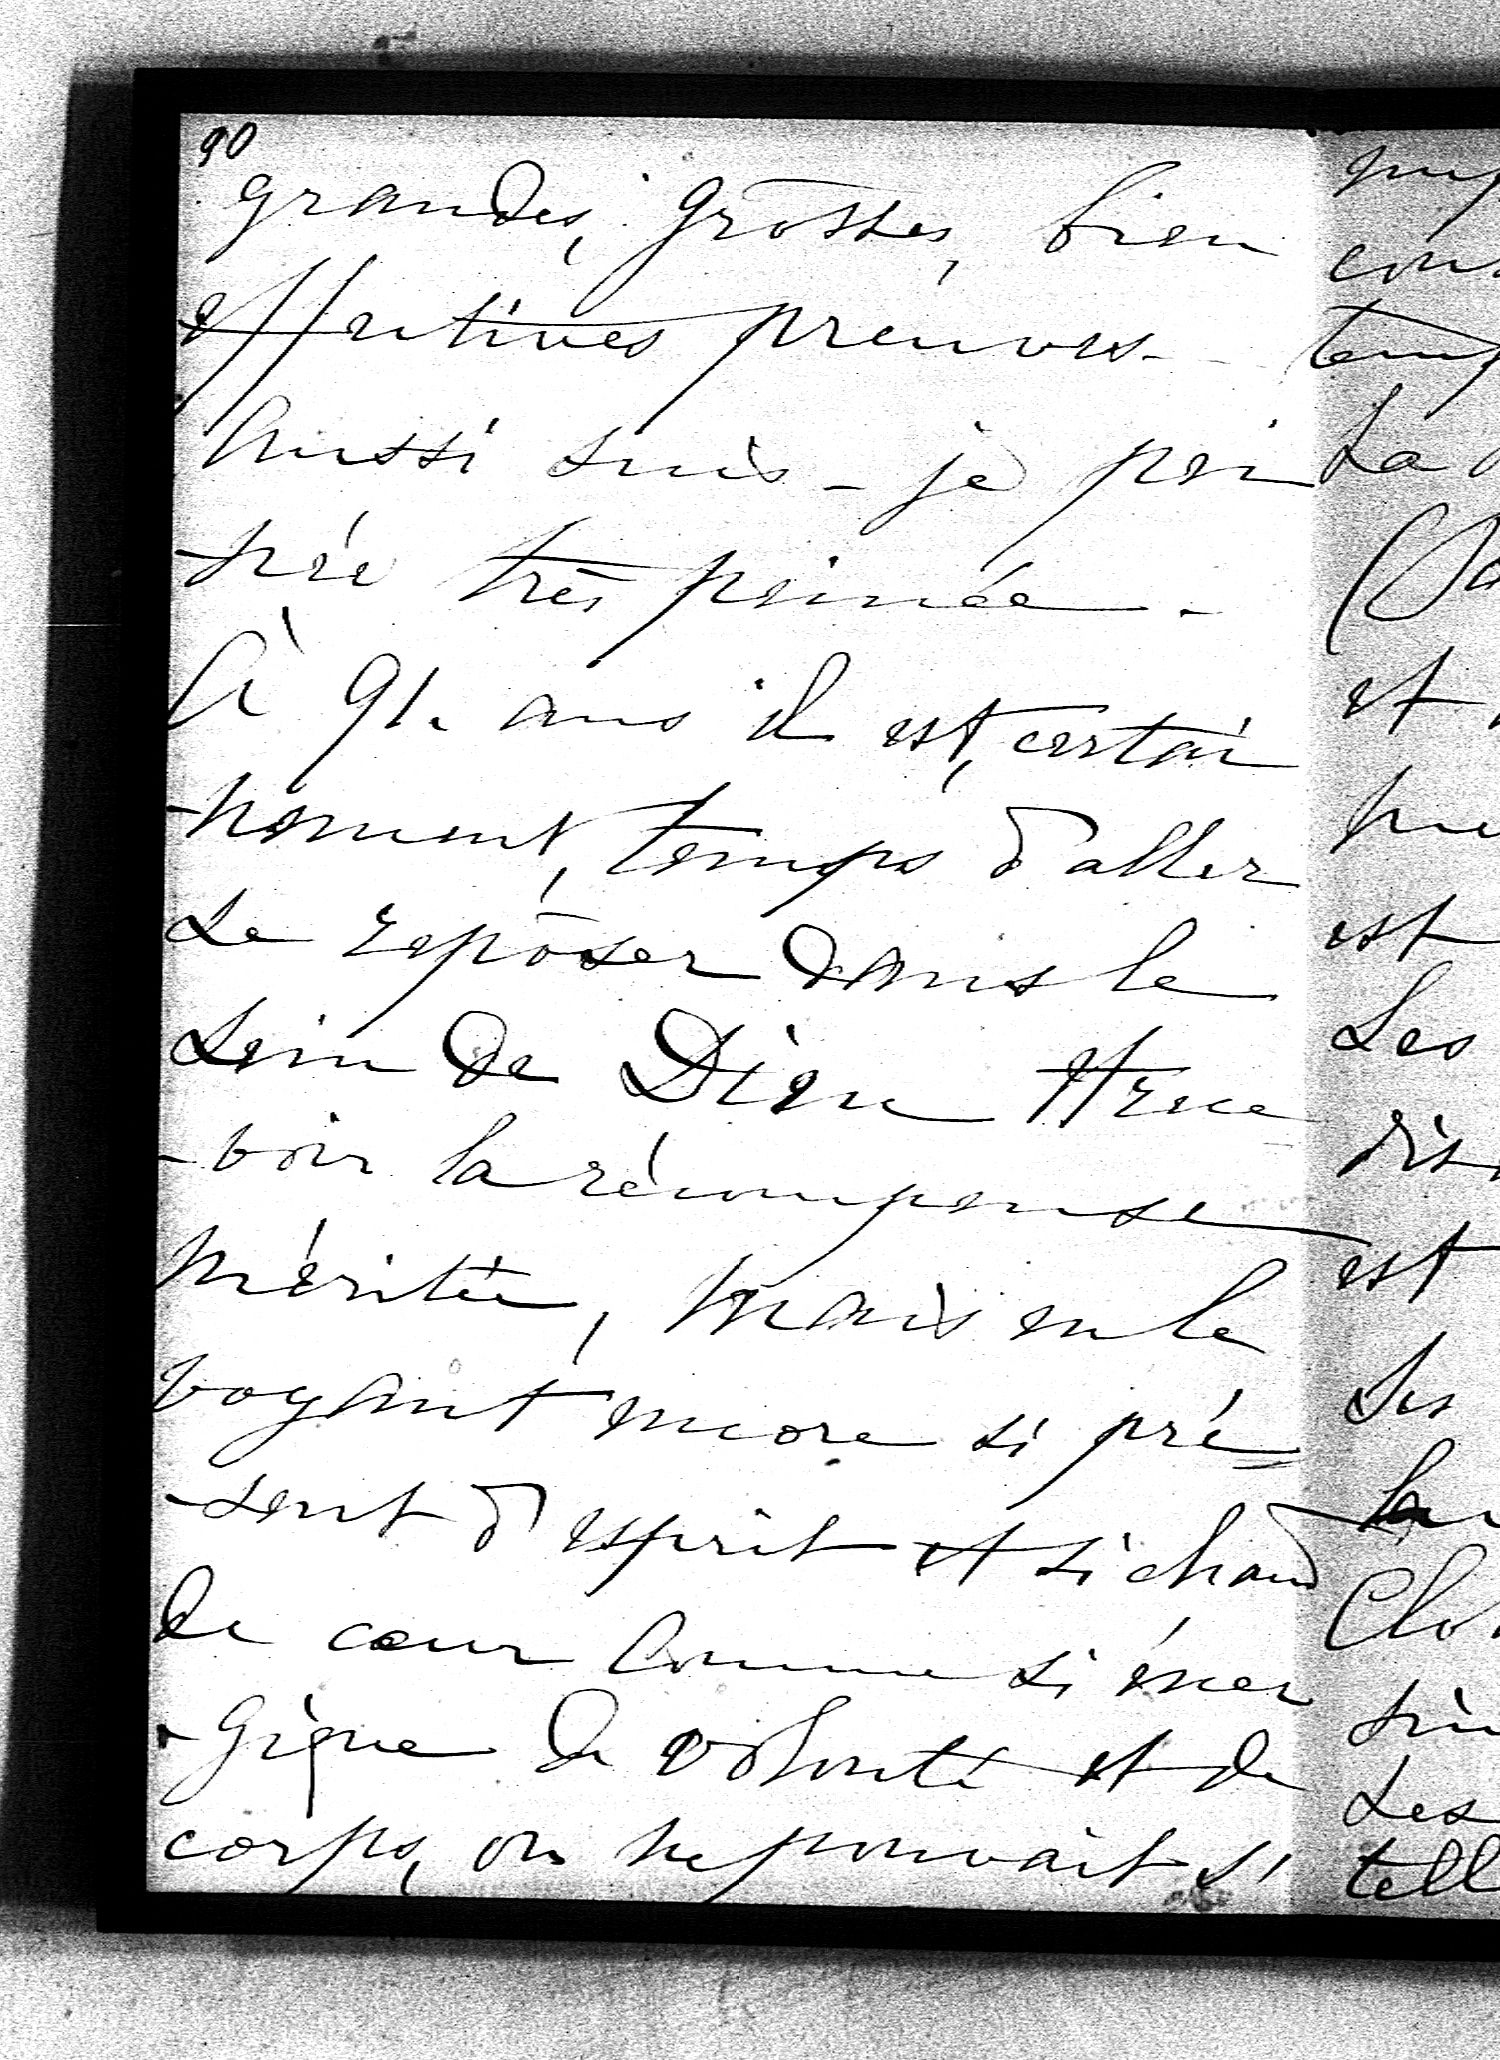 90
grandes, grosses, bien
effectives preuves.
Aussi suis-je pei
-née très peinée.
À 91. ans il est, certai
-nement, temps d'aller
se reposer dans le
sein de Dieu et rece
-voir la récompense
méritée, mais en le
voyant encore si pré=
-sent d'esprit et si chaud
de cœur comme si éner
-gique de volonté et de
corps, on ne pouvait s'
cons
temp
La
et
est
Les
dis
est
Ses
Les
tell